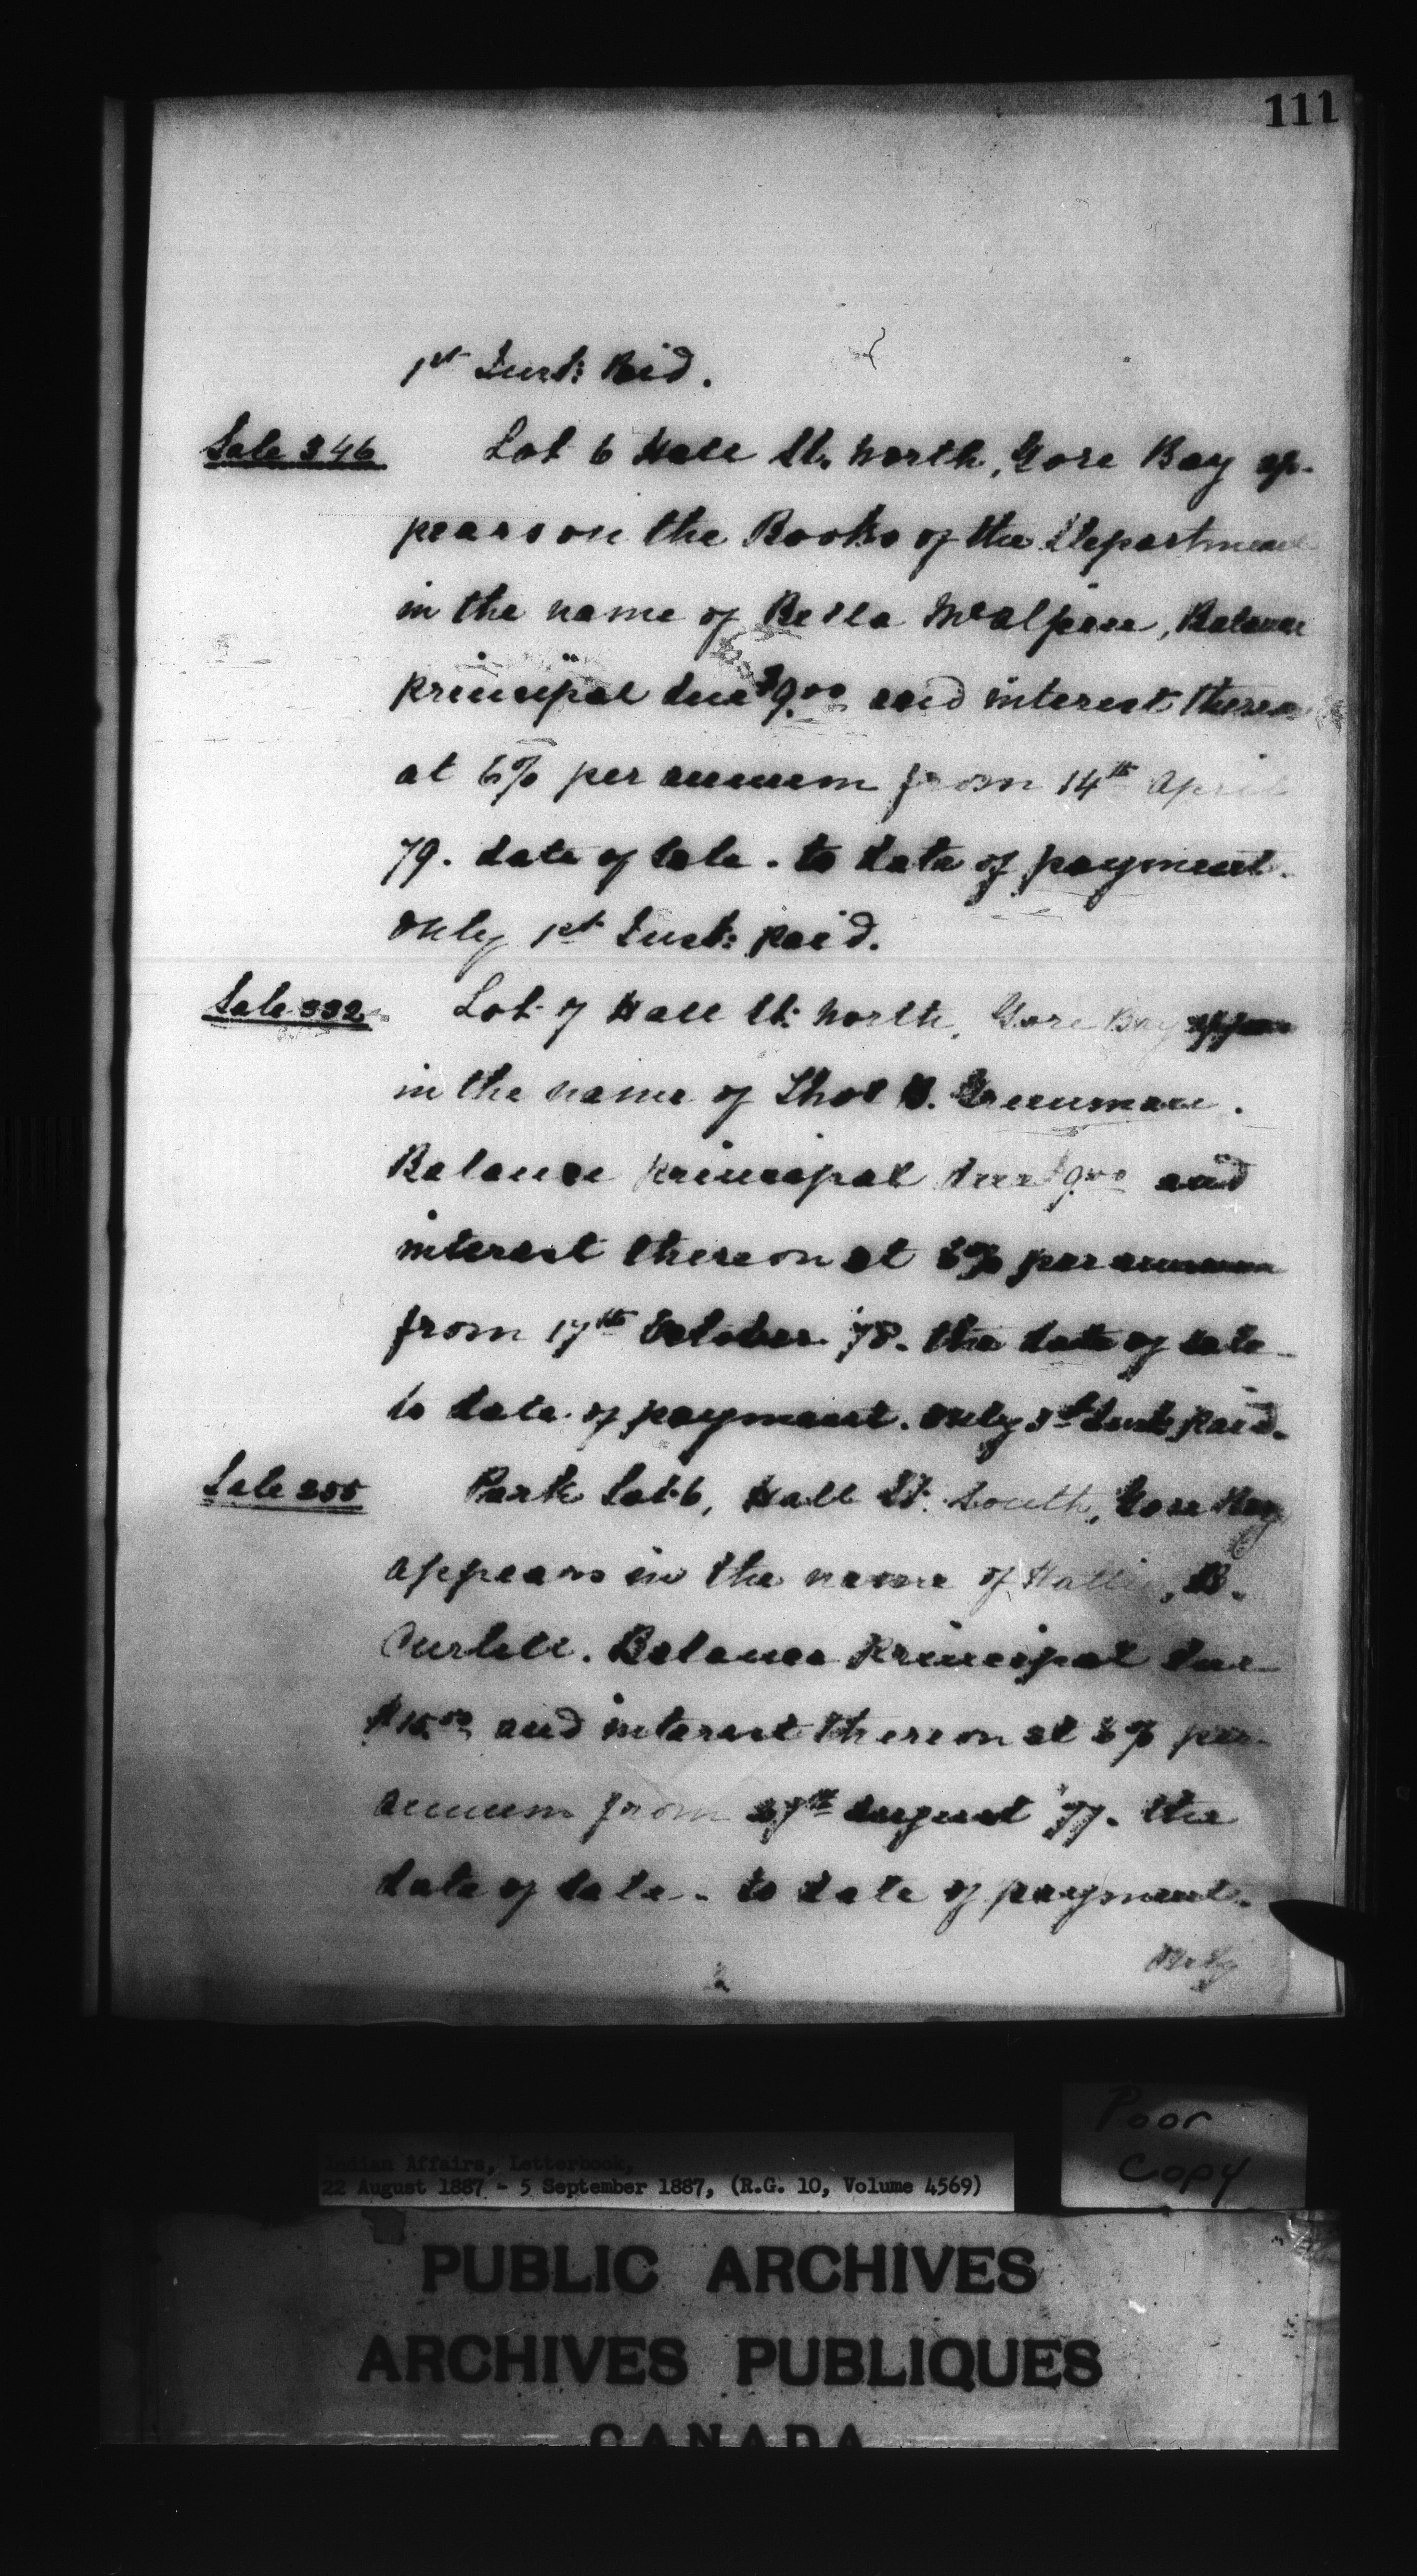 111
1st Inst: Paid.
Sale 346 Lot 6 Hall St. North, Gore Bay ap-
pears on the Books of the Department
in the name of Bella McAlpine, Balance
principal due $9.00 and interest thereon
at 6% per annum from 14th April
79. date of Sale. to date of payment.
Only 1st Inst: paid.
Sale 332 Lot 7 Hall St: North, Gore Bay appears
in the name of Thos B.
Balance principal due $9.00 and
interest thereon at 6% per annum
from 17th October 78. the date of sale
to date of payment. Only 1st Inst: paid.
Sale 255 Park Lot 6, Hall St. South, Gore Bay
appears in the name of Hattie B.
Balance principal due
and interest thereon at 6% per
annum from 27th August 77. the
date of sale - to date of payment.
Only
Poor
Copy
Indian Affairs, Letterbook,
22 August 1887 - 5 September 1887, (R.G. 10, Volume 4569)
PUBLIC ARCHIVES
ARCHIVES PUBLIQUES
CANADA